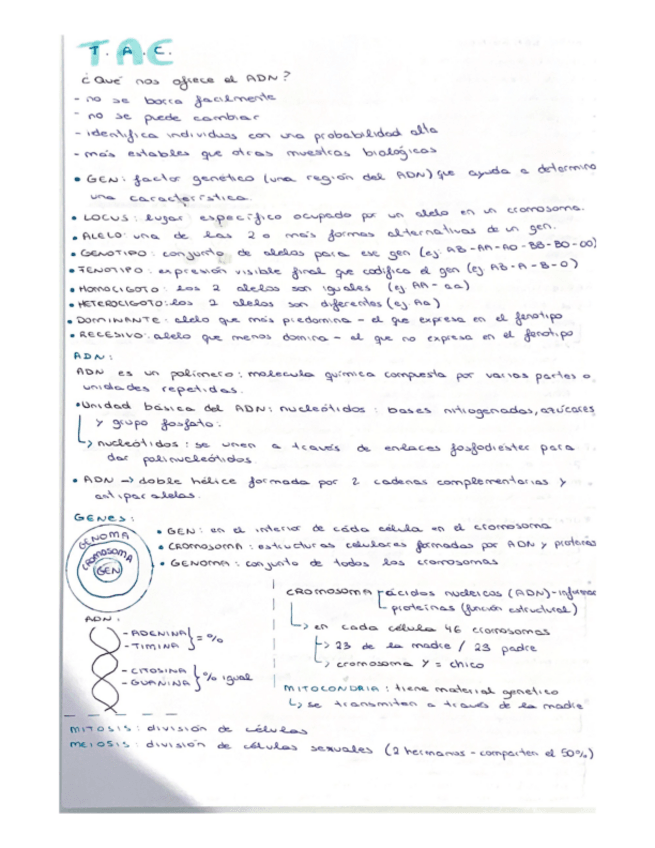 T.A.C.
¿Qué nos ofrece el ADN?
- no se borra facilmente
- no se puede cambiar
- identifica individuos con una probabilidad alta
- más estables que otras muestras biológicas
• GEN: factor genético (una región del ADN) que ayuda a determina
una característica.
• LOCUS: lugar específico ocupado por un alelo en un cromosoma.
• ALELO: una de las 2 o más formas alternativas de un gen.
• GENOTIPO: conjunto de alelos para ese gen (ej: AB-AA-AO-BB-BO-OO)
• FENOTIPO: expresión visible final que codifica el gen (ej: AB-A-B-O)
• HOMOCIGOTO: los 2 alelos son iguales (ej AA-aa)
• HETEROCIGOTO: los 2 alelos son diferentes (ej. Aa)
• DOMINANTE: alelo que más predomina - el que expresa en el fenotipo
• RECESIVO: alelo que menos domina - el que no expresa en el fenotipo
ADN:
ADN es un polímero: molecula química compuesta por varias partes o
unidades repetidas.
• Unidad básica del ADN: nucleótidos: bases nitrogenadas, azúcares
y grupo fosfato.
↳ nucleótidos: se unen a través de enlaces fosfodiester para
dar polinucleótidos.
• ADN → doble hélice formada por 2 cadenas complementarias y
antiparalelas.
GENES:
• GEN: en el interior de cada célula en el cromosoma
• CROMOSOMA: estructuras celulares formadas por ADN y proteínas
• GENOMA: conjunto de todos los cromosomas
GENOMA
CROMOSOMA
GEN
ADN:
- ADENINA
- TIMINA } = %
- CITOSINA
- GUANINA } % igual
CROMOSOMA ácidos nucleicos (ADN) -
proteínas (función estructural)
↳ en cada célula 46 cromosomas
↳ 23 de la madre / 23 padre
↳ cromosoma Y = chico
MITOCONDRIA: tiene material genético
↳ se transmiten a través de la madre
MITOSIS: división de células
MEIOSIS: división de células sexuales (2 hermanos - comparten el 50%)